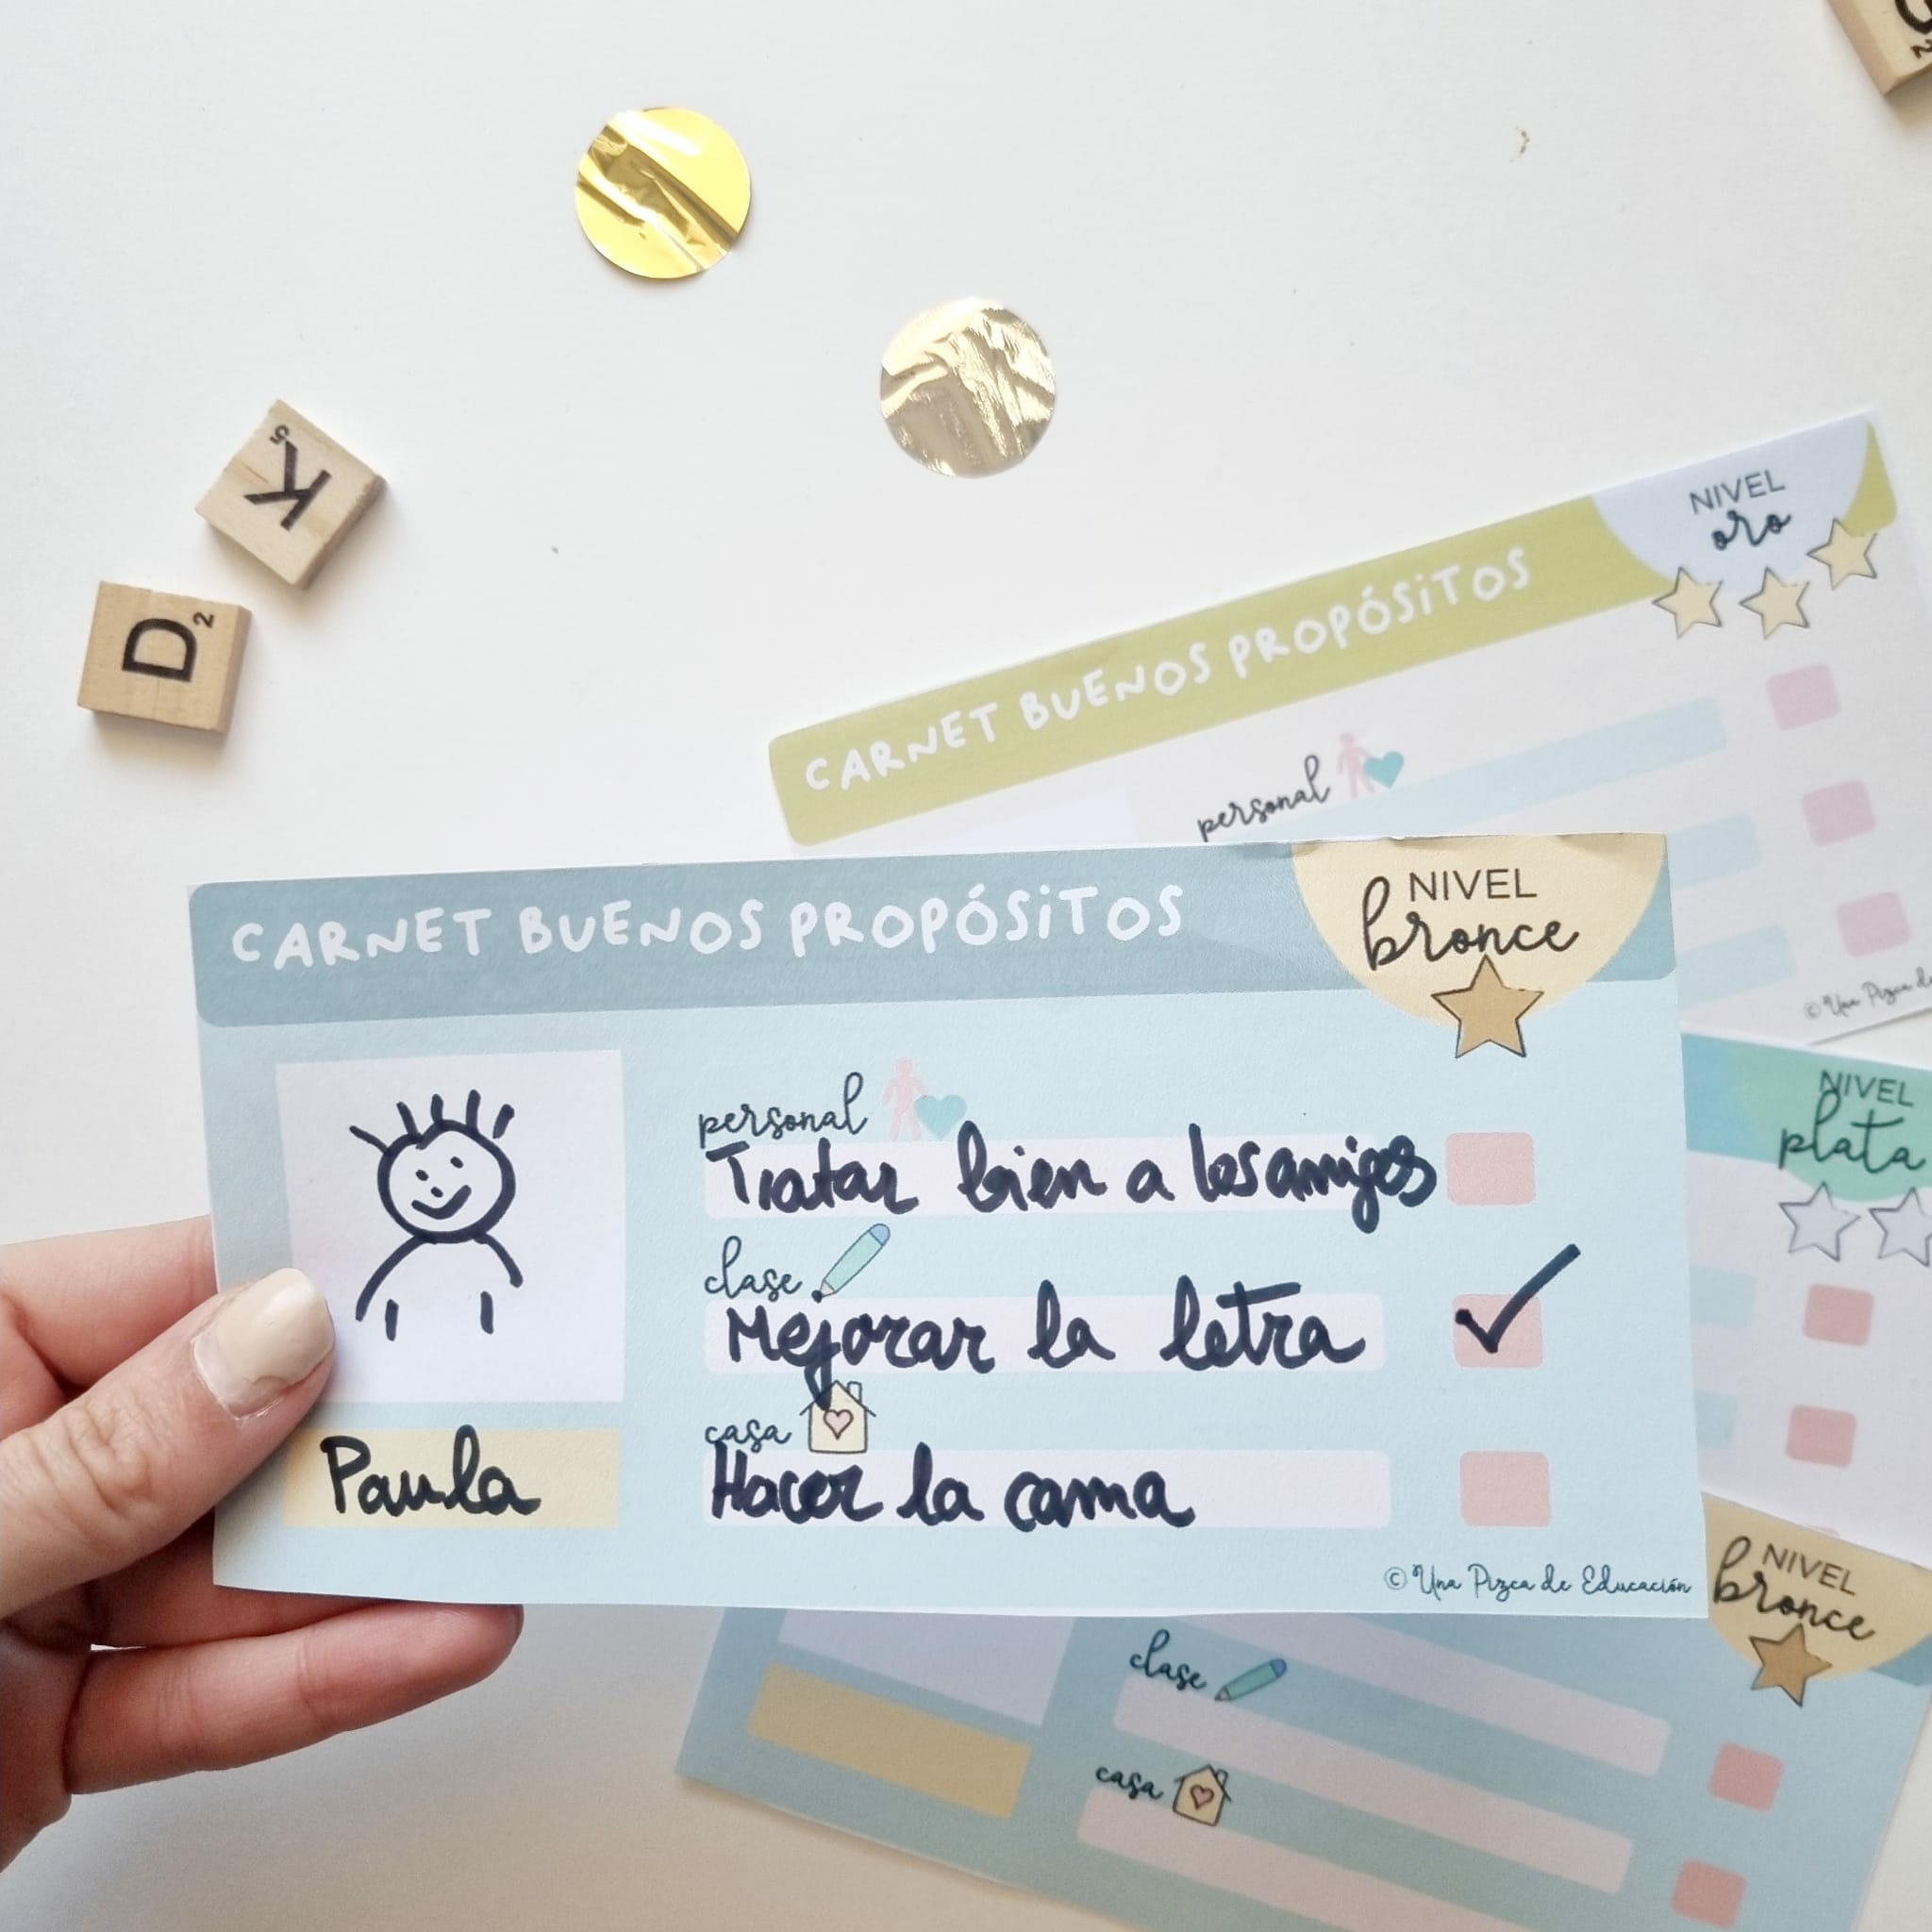 K
5
D
2
2
NIVEL
oro
CARNET BUENOS PROPÓSITOS
personal
© Una Pizca de
CARNET BUENOS PROPÓSITOS
NIVEL
bronce
personal
Tratar bien a los amigos
clase
Mejorar la letra
casa
Hacer la cama
Paula
© Una Pizca de Educación
NIVEL
plata
NIVEL
bronce
clase
casa